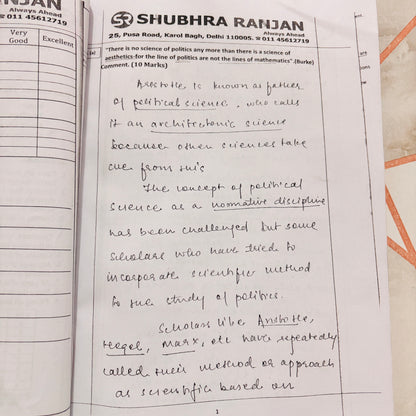 NJAN
Always Ahead
☎ 011 45612719
Very Good
Excellent
SR SHUBHRA RANJAN
Always Ahead
25, Pusa Road, Karol Bagh, Delhi 110005. ☎ 011 45612719
"There is no science of politics any more than there is a science of
aesthetics-for the line of politics are not the lines of mathematics".(Burke)
Comment. (10 Marks)
Aristotle is known as father
of political science, who calls
it an architectonic science
because other sciences take
cue from this
The concept of political
science as a normative discipline
has been challenged but some
scholars who have tried to
incorporate scientific method
to the study of politics.
Scholars like Aristotle,
Hegel, Marx, etc have repeatedly
called their method or approach
as scientific based on
1